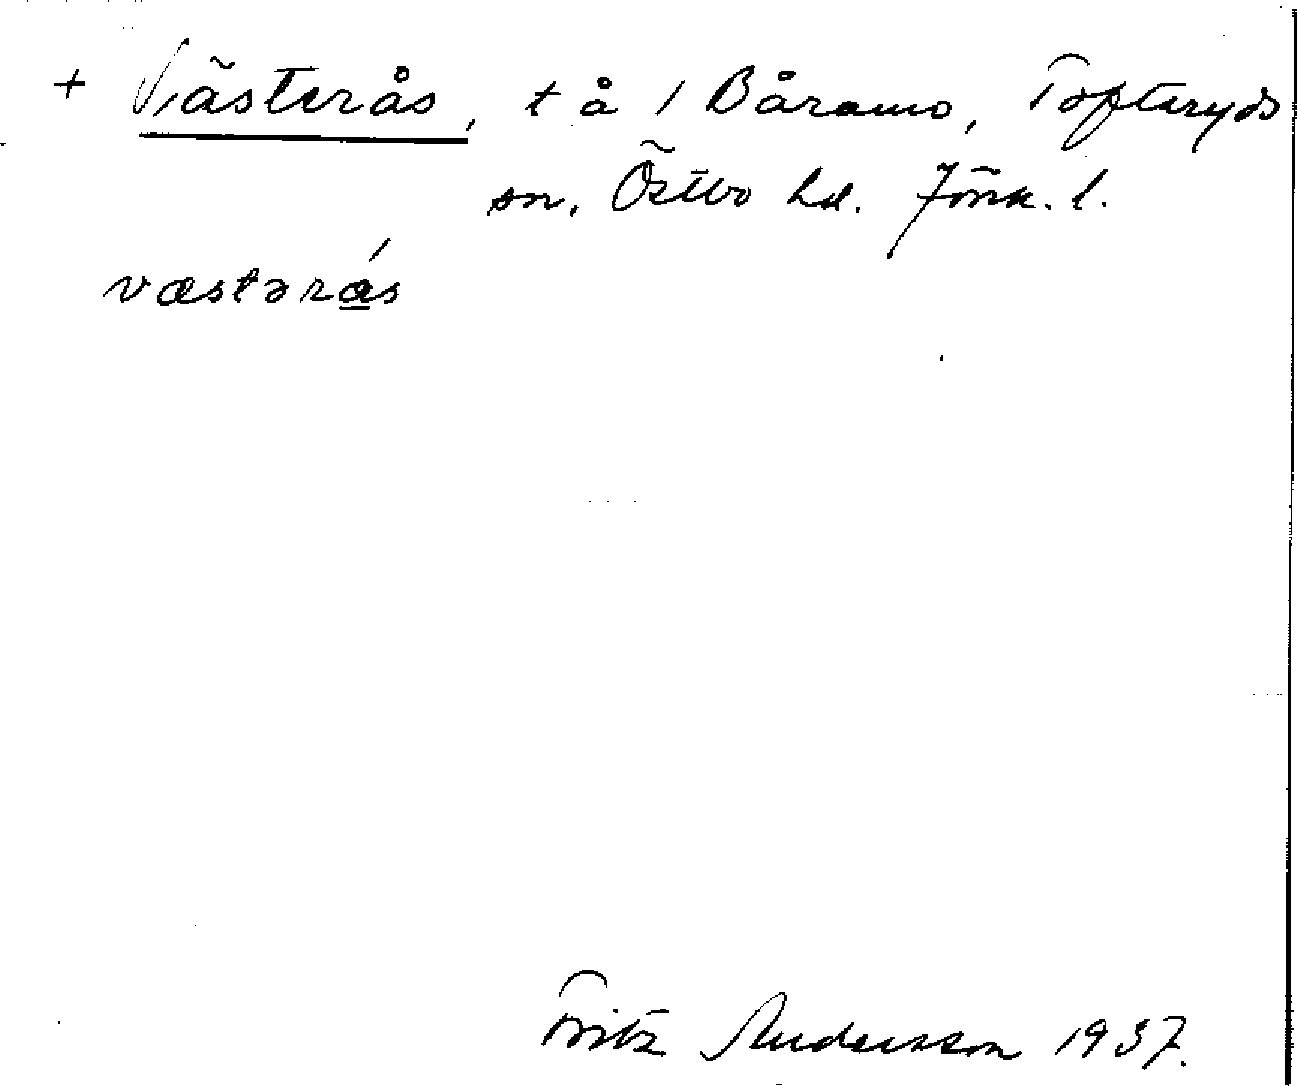 + Västerås, t å / Båramo, Tofteryds
sn, Östbo hd. Jönk. l.
væstərás
Fritz Andersson 1937.